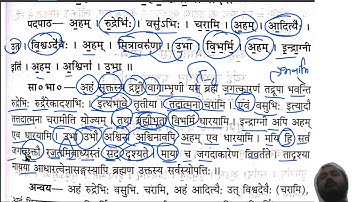 पदपाठ– अहम् । रुद्रेभिः । वसुऽभिः । चरामि । अहम् । आदित्यैः ।
उत । विश्वऽदेवैः । अहम् । मित्रावरुणा । उभा । बिभर्मि । अहम् । इन्द्राग्नी
इति । अहम् । अश्विना । उभा ॥
सा० भा०– अहं सूक्तस्य द्रष्ट्री वागाम्भृणी यद् ब्रह्म जगत्कारणं तद्रूपा भवन्ती
रुद्रेभिः रुद्रैरेकादशभिः । इत्थंभावे तृतीया । तदात्मना चरामि । एवं वसुभिः इत्यादौ
तत्तदात्मना चरामीति योज्यम् । तथा ब्रह्मीभूता बिभर्मि धारयामि । इन्द्राग्नी अपि अहम्
एव धारयामि । उभा उभौ अश्विना अश्विनावपि अहम् एव धारयामि । मयि हि सर्वं
जगच्छुक्तौ रजतमिवाध्यस्तं सद् दृश्यते । माया च जगदाकारेण विवर्तते । तादृश्या
मायया आधारत्वेनासङ्गस्यापि ब्रह्मण उक्तस्य सर्वस्योपपत्तिः ॥
अन्वय– अहं रुद्रेभिः वसुभिः चरामि, अहं आदित्यैः उत् विश्वदेवैः (चरामि),